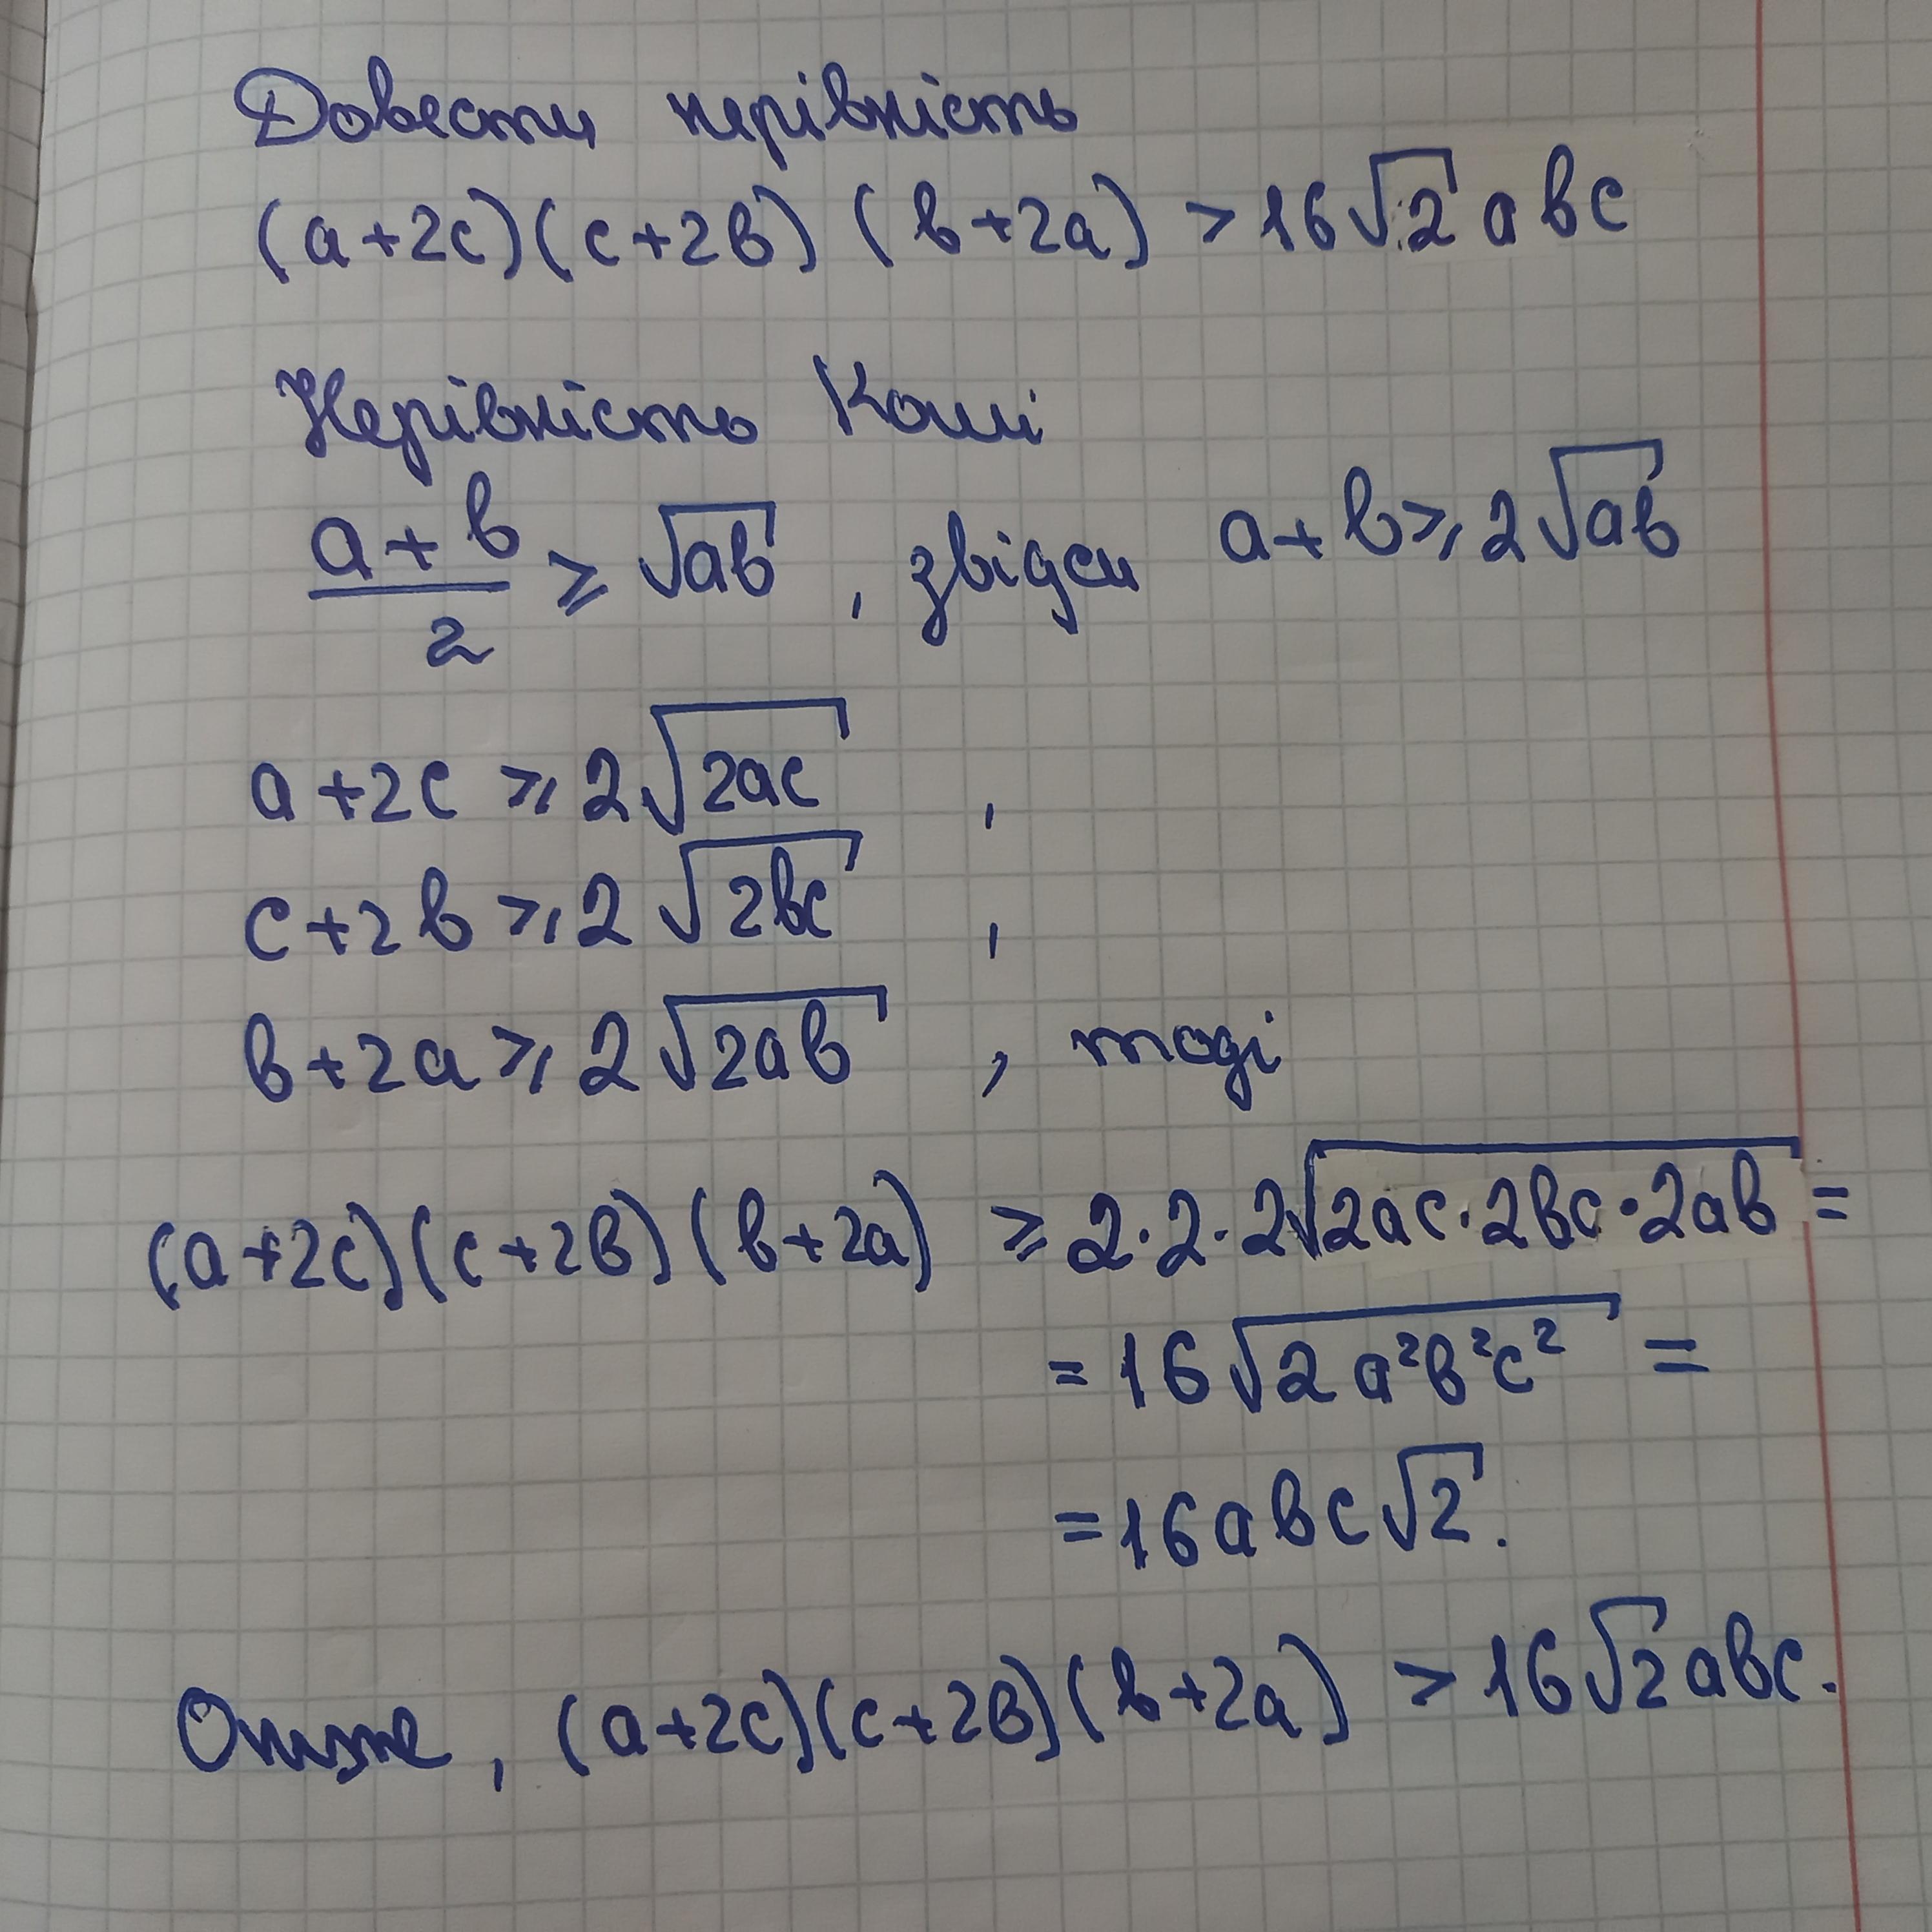 Довести нерівність
(a+2c)(c+2b)(b+2a) > 16√2 abc
Нерівність Коші
(a+b)/2 ≥ √ab, звідси a+b ≥ 2√ab
a+2c ≥ 2√2ac ,
c+2b ≥ 2√2bc ,
b+2a ≥ 2√2ab , тоді
(a+2c)(c+2b)(b+2a) ≥ 2·2·2√2ac·2bc·2ab =
= 16√2a²b²c² =
= 16abc√2.
Отже, (a+2c)(c+2b)(b+2a) > 16√2abc.